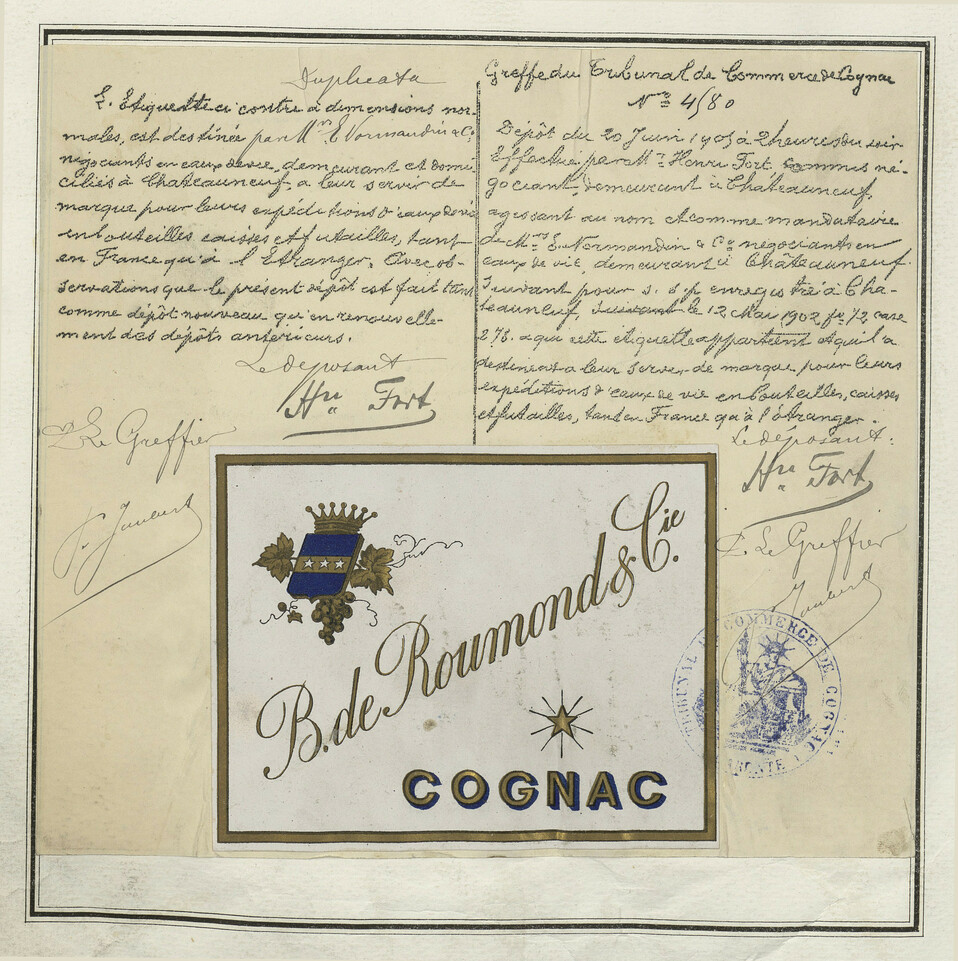 Duplicata
L'Etiquette ci contre à dimensions nor-
males, est destinée par Mrs E. Normandin & Co
négociants en eaux de vie, demeurant et domi-
ciliés à Chateauneuf, a leur servir de
marque pour leurs expéditions d'eaux de vie
en bouteilles caisses et futailles, tant
en France qu'à l'Etranger. Avec ob-
servations que le présent dépôt est fait tant
comme dépôt nouveau qu'en renouvelle-
ment des dépôts antérieurs.
Le déposant
Hri Fort
Le Greffier
Greffe du Tribunal de Commerce de Cognac
No 4180
Dépôt du 20 Juin 1905 à 2 heures du soir
Effectué par Mr Henri Fort commis né-
gociant, demeurant à Châteauneuf,
agissant au nom et comme mandataire
de Mrs E. Normandin & Co négociants en
eaux de vie, demeurant à Châteauneuf.
Suivant pour s. s/p enregistré à Cha-
teauneuf, le 12 Mai 1902 fo 72 case
275. a qui cette étiquette appartient et qui l'a
destinent a leur servir de marque pour leurs
expéditions d'eaux de vie en bouteilles, caisses
et futailles, tant en France qu'à l'étranger.
Le déposant:
Hri Fort
Le Greffier
B. de Roumond & Cie.
COGNAC
TRIBUNAL DE COMMERCE DE COGNAC